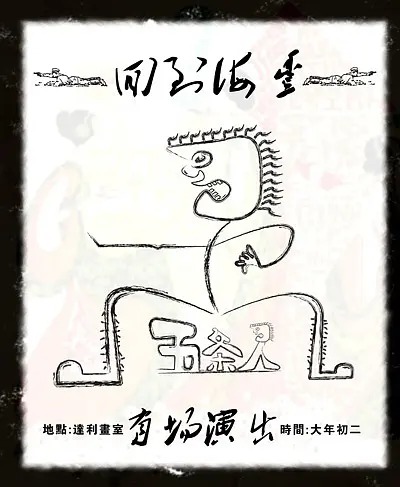 回到海豐
五条人
地點:達利畫室 有場演出 時間:大年初二